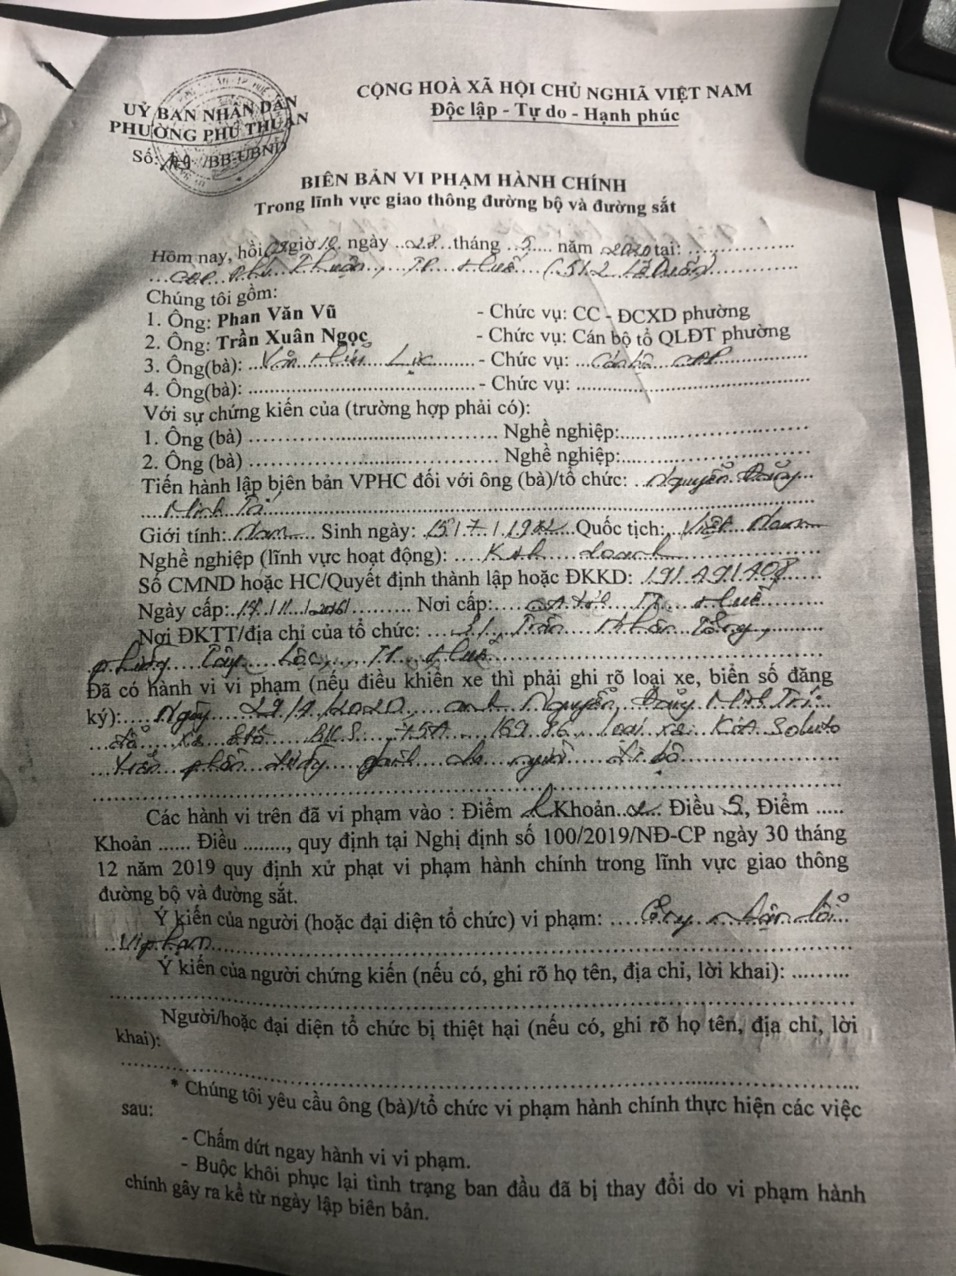 CỘNG HOÀ XÃ HỘI CHỦ NGHIÃ VIỆT NAM
Độc lập - Tự do - Hạnh phúc
UỶ BAN NHÂN DÂN
PHƯỜNG PHÚ THUẬN
Số: /BB-UBND
BIÊN BẢN VI PHẠM HÀNH CHÍNH
Trong lĩnh vực giao thông đường bộ và đường sắt
Hôm nay, hồi giờ ngày 28 tháng 2 năm 2020 tại:
CAP. Phú Thuận, TP. Huế (51.2 Lê Duẩn)
Chúng tôi gồm:
1. Ông: Phan Văn Vũ - Chức vụ: CC - ĐCXD phường
2. Ông: Trần Xuân Ngọc - Chức vụ: Cán bộ tổ QLĐT phường
3. Ông(bà): Văn Hữu Lực - Chức vụ: Cán bộ CAP
4. Ông(bà): - Chức vụ:
Với sự chứng kiến của (trường hợp phải có):
1. Ông (bà) Nghề nghiệp:
2. Ông (bà) Nghề nghiệp:
Tiến hành lập biên bản VPHC đối với ông (bà)/tổ chức: Nguyễn Đăng
Minh
Giới tính: Nam Sinh ngày: Quốc tịch: Việt Nam
Nghề nghiệp (lĩnh vực hoạt động): Kinh doanh
Số CMND hoặc HC/Quyết định thành lập hoặc ĐKKD: 191.491.408
Ngày cấp: Nơi cấp: CA tỉnh TT. Huế
Nơi ĐKTT/địa chỉ của tổ chức: Trần Nhân Tông,
phường Tây Lộc, TP. Huế
Đã có hành vi vi phạm (nếu điều khiển xe thì phải ghi rõ loại xe, biển số đăng
ký): Ngày 2020, anh Nguyễn Đăng Minh
đỗ xe ôtô BKS 75A 169.86, loại xe KIA Soluto
trên phần đường dành cho người đi bộ
Các hành vi trên đã vi phạm vào : Điểm Khoản Điều 5, Điểm .....
Khoản ...... Điều ........., quy định tại Nghị định số 100/2019/NĐ-CP ngày 30 tháng
12 năm 2019 quy định xử phạt vi phạm hành chính trong lĩnh vực giao thông
đường bộ và đường sắt.
Ý kiến của người (hoặc đại diện tổ chức) vi phạm: nhận lỗi
vi phạm
Ý kiến của người chứng kiến (nếu có, ghi rõ họ tên, địa chỉ, lời khai): .........
Người/hoặc đại diện tổ chức bị thiệt hại (nếu có, ghi rõ họ tên, địa chỉ, lời
khai):
* Chúng tôi yêu cầu ông (bà)/tổ chức vi phạm hành chính thực hiện các việc
sau:
- Chấm dứt ngay hành vi vi phạm.
- Buộc khôi phục lại tình trạng ban đầu đã bị thay đổi do vi phạm hành
chính gây ra kể từ ngày lập biên bản.